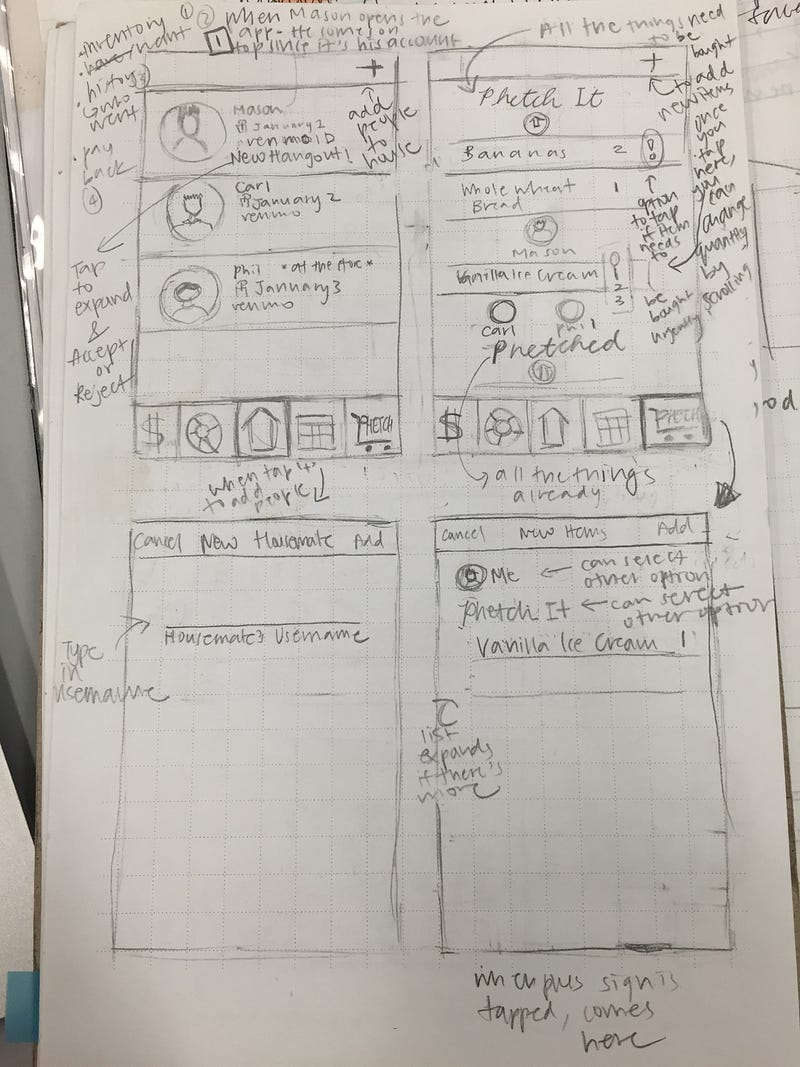 inventory ①
• have/want
• history ③
↳ who went
• pay back
④
② when Mason opens the
app - He comes on
top since it's his account
1
+
Mason
January 2
venmo ID
New Hangout!
add
people
to
house
Carl
January 2
venmo
phil *at the store*
January 3
venmo
Tap
to
expand
&
Accept
or
Reject
$
PHETCH
when tap "+"
to add
people
All the things need
to be
bought
+
to add
new items
Phetch It
Bananas 2 !
Whole wheat 1
Bread
Mason
Vanilla Ice Cream 0
1
2
3
option
to tap
if item
needs
to
be
bought
urgently
once
you
tap
here,
you
can
change
quantity
by
scrolling
Carl
phil
Phetched
$
PHETCH
all the things
already
Cancel New Housemate Add
Housemate's Username
Type
in
username
Cancel New Items Add
Me
can select
other option
Phetch It
can select
other option
Vanilla Ice Cream 1
list
expands
if there's
more
when plus sign is
tapped, comes
here